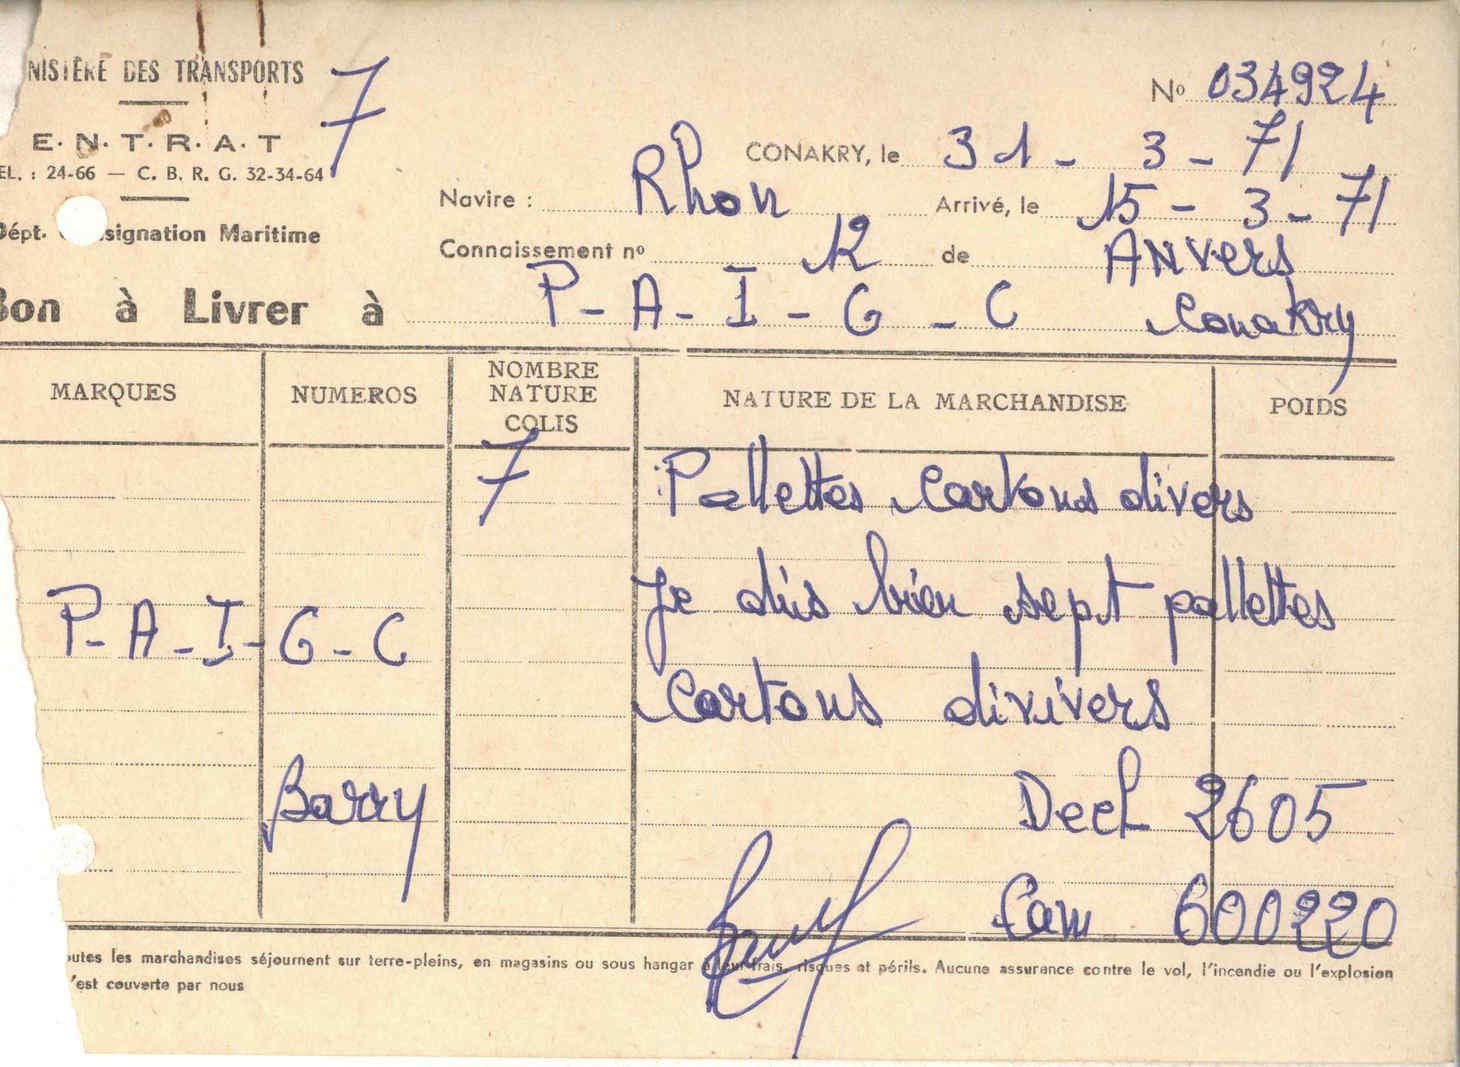 NISTÈRE DES TRANSPORTS
7
Nº 034924
E. N. T. R. A. T
CONAKRY, le 31 - 3 - 71
EL. : 24-66 — C. B. R. G. 32-34-64
Navire : Rhon Arrivé, le 15 - 3 - 71
Dépt. signation Maritime
Connaissement nº 12 de ANVers
Bon à Livrer à P - A - I - G - C Conakry
MARQUES NUMEROS NOMBRE NATURE COLIS NATURE DE LA MARCHANDISE POIDS
7 Pallettes Cartons divers
P - A - I - G - C Je dis bien sept pallettes
Cartons divivers
Barry Decl 2605
Cam 600220
outes les marchandises séjournent sur terre-pleins, en magasins ou sous hangar à leur frais, risques et périls. Aucune assurance contre le vol, l'incendie ou l'explosion
'est couverte par nous